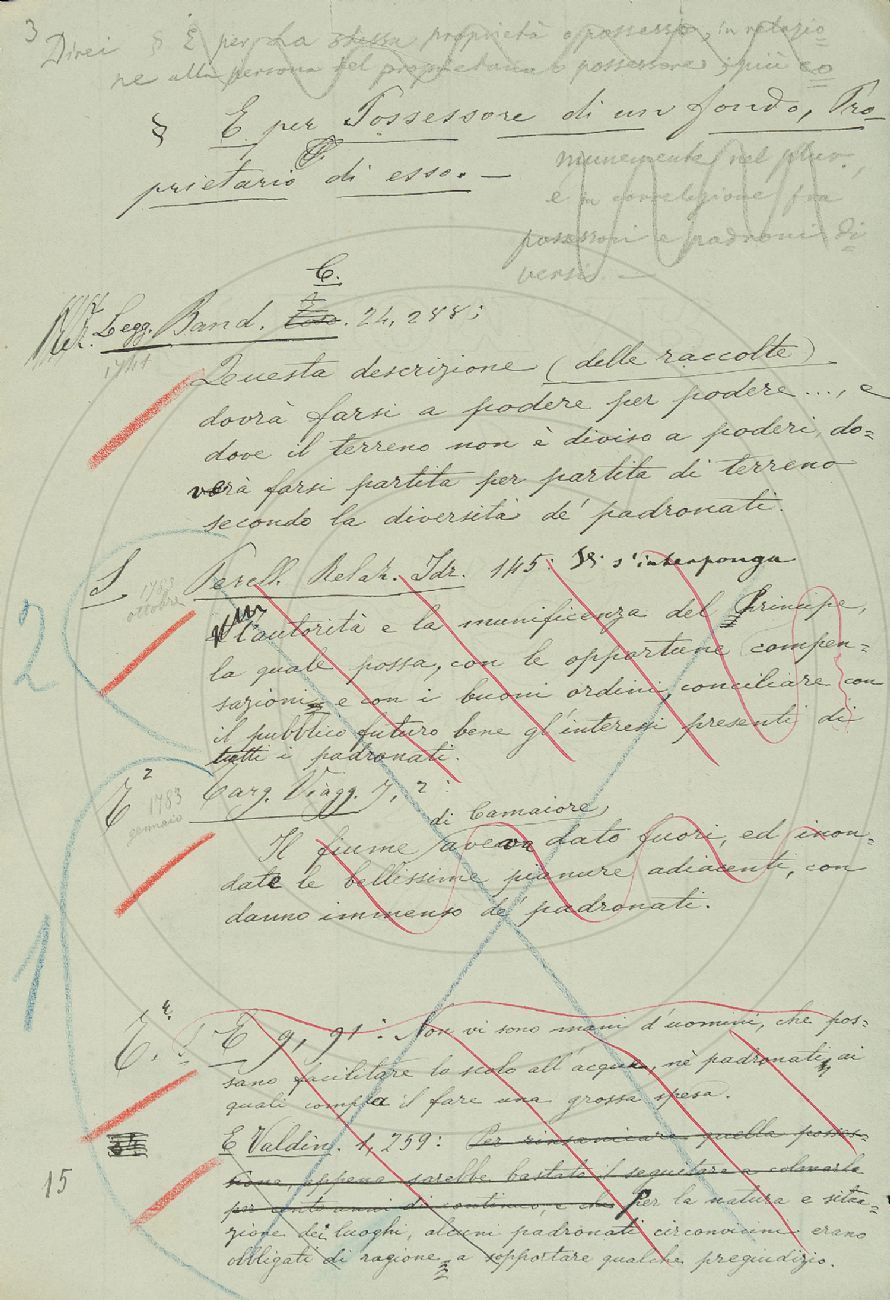 3
Direi § È per La stessa proprietà o possesso, in relazio-
ne alla persona del proprietario o possessore; i più co
§ E per Possessore di un fondo, Pro-
prietario di esso. —
munemente nel plur.,
e in correlazione fra
possessori e padroni di
versi. —
C.
Legg. Band. 24, 288:
1741
Questa descrizione (delle raccolte)
dovrà farsi a podere per podere..., e
dove il terreno non è diviso a poderi, do=
verà farsi partita per partita di terreno
secondo la diversità de' padronati.
S Perell. Relaz. Idr. 145: Vi s'interponga
1783
ottobre
l'autorità e la munificenza del Principe,
2
la quale possa, con le opportune compen=
sazioni e con i buoni ordini, conciliare con
il pubblico futuro bene gl'interessi presenti di
tutti i padronati.
E 2 Targ. Viagg. 7, 2:
1783
gennaio
di Camaiore,
Il fiume aveva dato fuori, ed inon=
date le bellissime pianure adiacenti, con
danno immenso de' padronati.
1
E. E 9, 91: Non vi sono mani d'uomini, che pos=
sano facilitare lo scolo all'acque, nè padronati, ai
quali compla il fare una grossa spesa.
E Valdin. 1, 259: Per rinsanicare quella posses=
sione appena sarebbe bastato il seguitare a colmarla
15
per cento anni di continuo, e che Per la natura e situa=
zione dei luoghi, alcuni padronati circonvicini erano
obbligati di ragione a sopportare qualche pregiudizio.